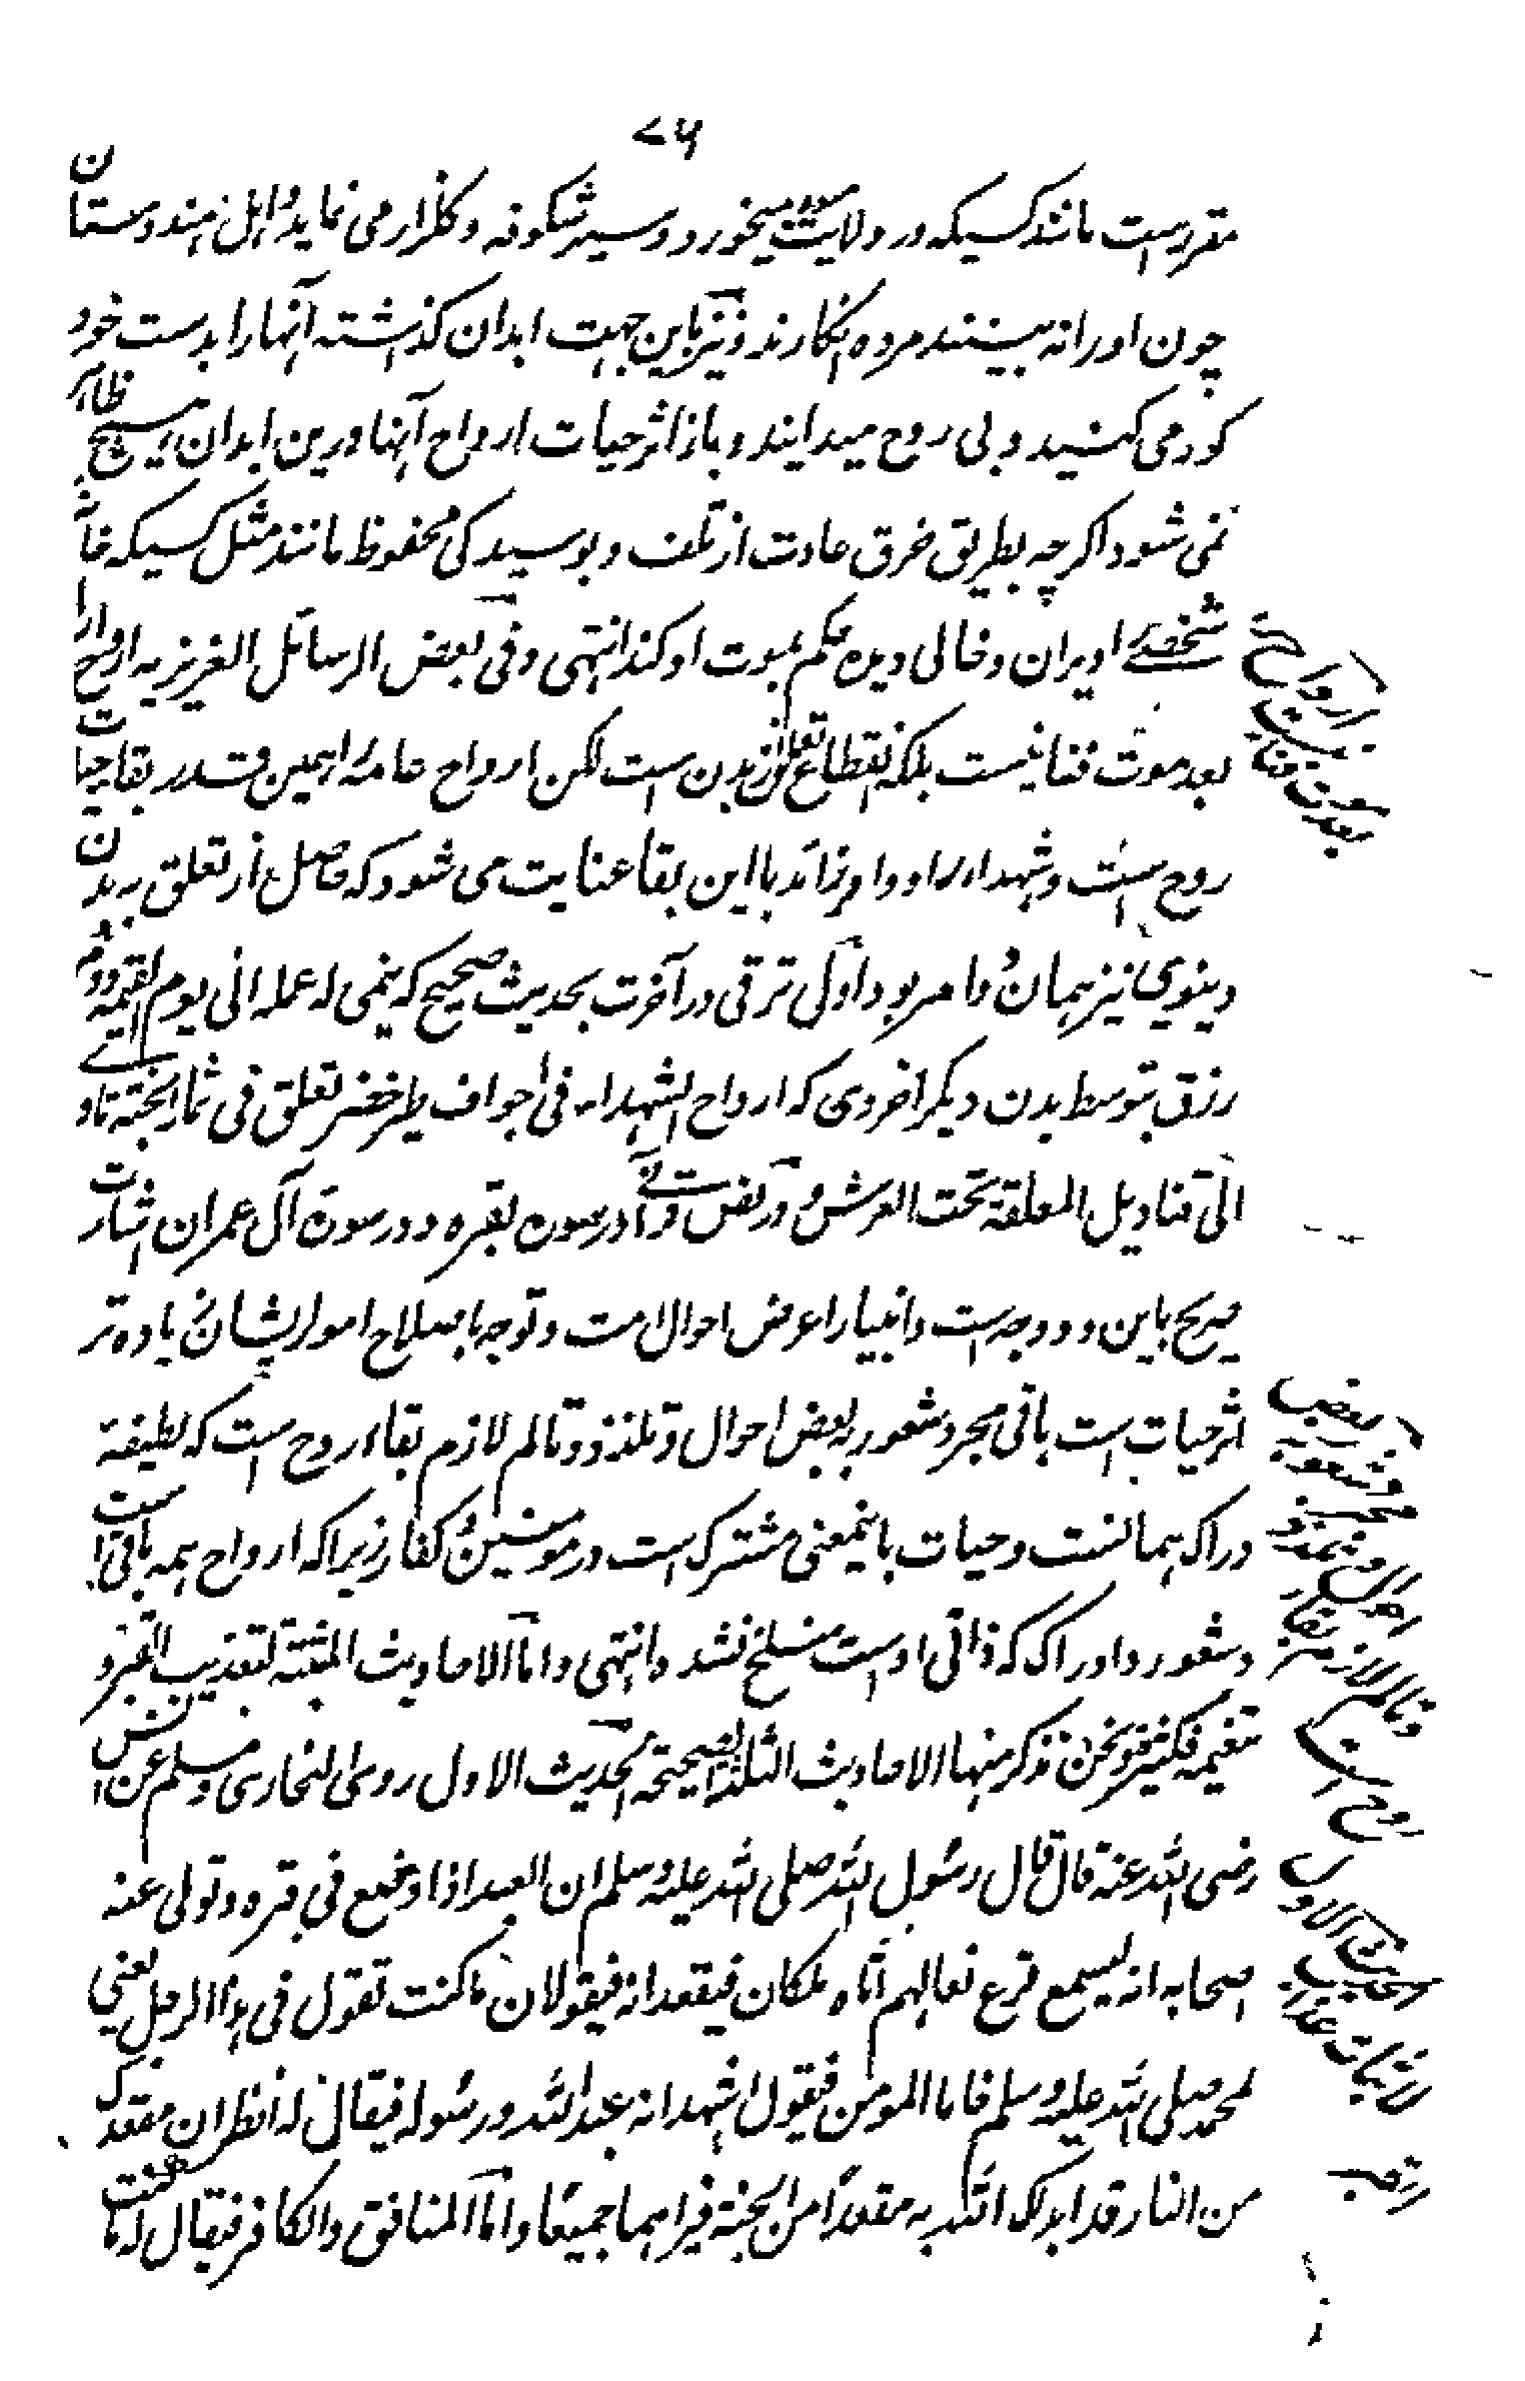 ۷۶
مقررست مانند کسیکه در ولایت میوه میخورد و سیر شکوفه و گلزار می نماید و اهل هندوستان
چون او را نه بینند مرده انگارند و نیز باین جهت ابدان گذاشته آنها را بدست خود
گور می کنند و بی روح میدانند و باز اثر حیات ارواح آنها درین ابدان هیچ ظاهر
نمی شود اگرچه بطریق خرق عادت از تلف و بوسیدگی محفوظ مانند مثل کسیکه خانه
شخصے او ویران و خالی دیده حکم بموت او کند انتهی و فی بعض الرسائل العزیزیه ارواح را
بعد موت فنا نیست بلکه انقطاع تعلق از بدن است لکن ارواح عامه را همین قدر بقا حیات
روح است و شهداء را دو امر زائد با این بقا عنایت می شود که حاصل از تعلق به بدن
دینوی نیز همان دو امر بود اول ترقی در آخرت بحدیث صحیح که ینمی له عمله الی یوم القیمة دوم
رزق بتوسط بدن دیگر اخروی که ارواح الشهداء فی اجواف طیر خضر تعلق فی ثمار الجنة تاوے
الی قنادیل المعلقة تحت العرش و در نص قرآنے در سوره بقره و در سورة آل عمران اشارت
صریح باین دو وجه است و انبیا را عرض احوال امت و توجه باصلاح امور ایشان زیاده تر
اثر حیات است باقی مجرد شعور به بعض احوال و تلذذ و تالم لازم بقاء روح است که لطیفة
دراکه همانست و حیات باینمعنی مشترک است در مومنین و کفار زیرا که ارواح همه باقی است
و شعور و ادراک که ذاتی اوست منسلخ نشده انتهی و اما الاحادیث المثبتة لتعذیب القبر و
تنعیمه فکثیرة ونحن نذکر منها الاحادیث الثلثة الصحیحة الحدیث الاول روی البخاری و مسلم عن انس
رضی الله عنه قال قال رسول الله صلی الله علیه وسلم ان العبد اذا وضع فی قبره وتولی عنه
اصحابه انه لیسمع قرع نعالهم اتاه ملکان فیقعدانه فیقولان ما کنت تقول فی هذا الرجل یعنی
لمحمد صلی الله علیه وسلم فاما المومن فیقول اشهد انه عبد الله ورسوله فیقال له انظر ان مقعدک
من النار قد ابدلک الله به مقعدا من الجنة فیراهما جمیعا واما المنافق والکافر فیقال له ما کنت
ارواح را
بعد موت فنا نیست
مجرد شعور به بعض
احوال و تلذذ
و تالم لازم بقاء
روح است
الحدیث الاول
لاثبات عذاب
القبر